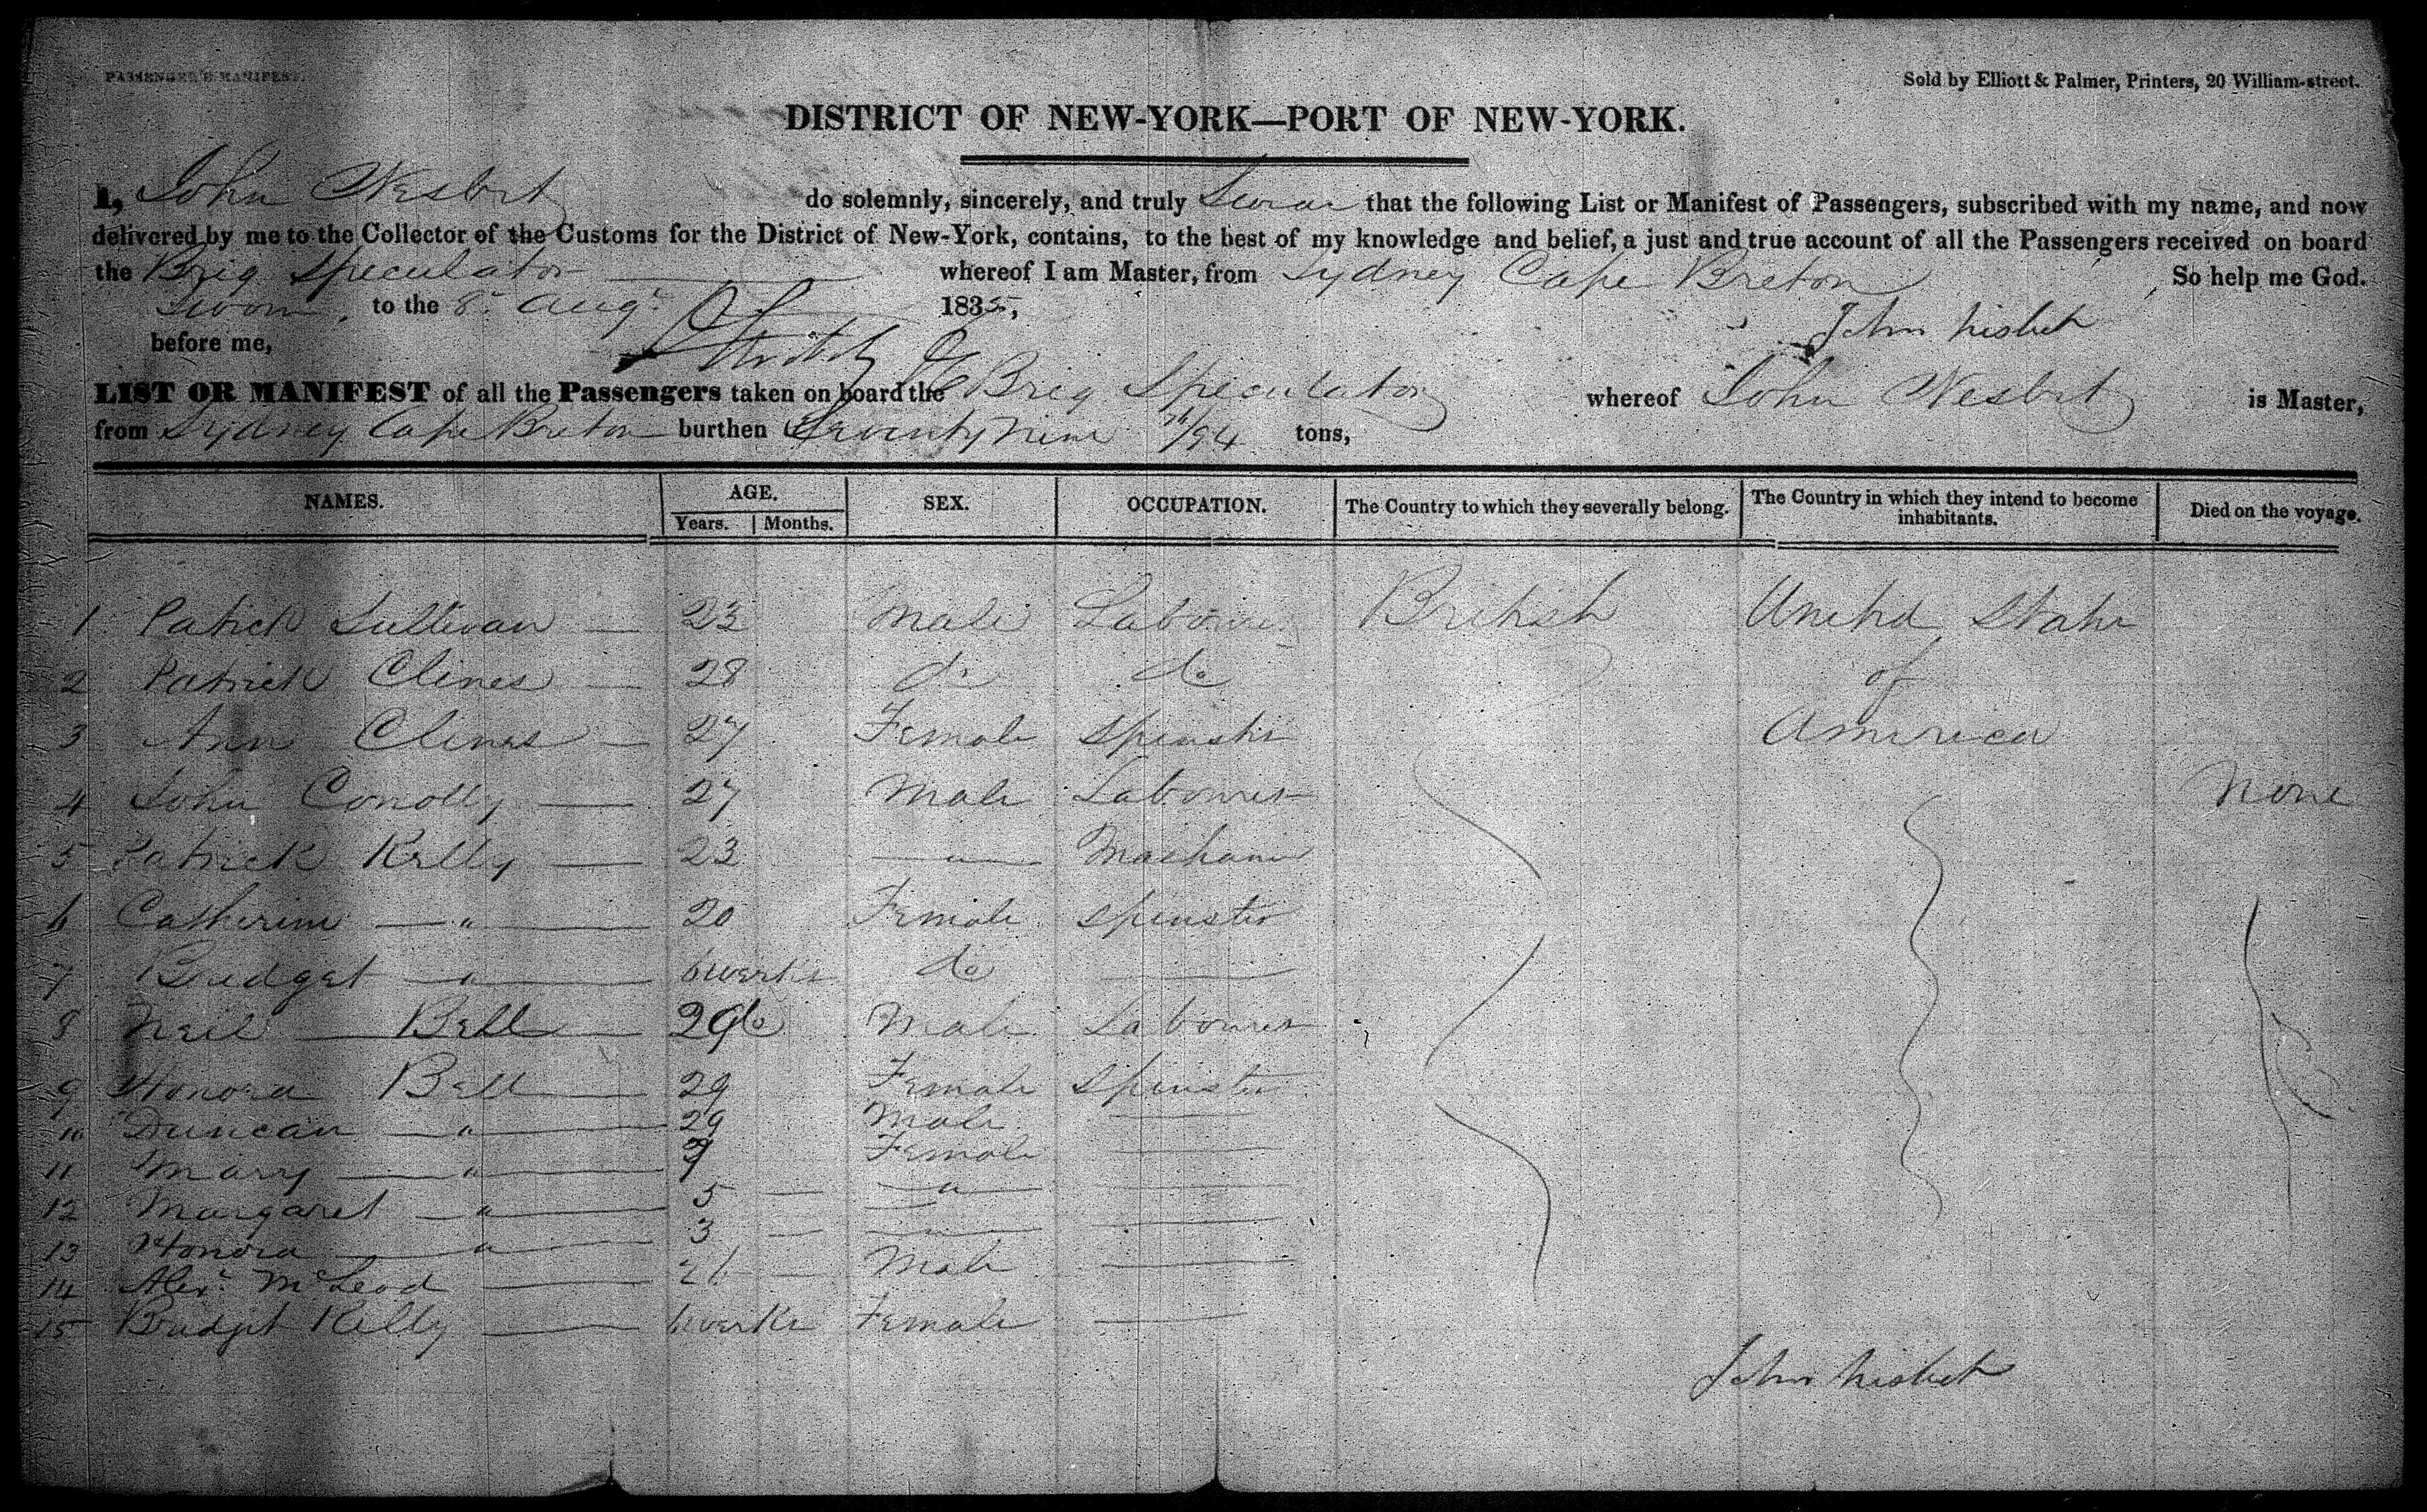 PASSENGER'S MANIFEST.
Sold by Elliott & Palmer, Printers, 20 William-street.
DISTRICT OF NEW-YORK—PORT OF NEW-YORK.
I, John Nesbit do solemnly, sincerely, and truly Swear that the following List or Manifest of Passengers, subscribed with my name, and now
delivered by me to the Collector of the Customs for the District of New-York, contains, to the best of my knowledge and belief, a just and true account of all the Passengers received on board
the Brig Speculator whereof I am Master, from Sydney Cape Breton So help me God.
Sworn, to the 8 Augt 1835,
John Nisbet
before me,
LIST OR MANIFEST of all the Passengers taken on board the Brig Speculator whereof John Nesbit is Master,
from Sydney Cape Breton burthen Seventy Nine /94 tons,
NAMES. AGE. SEX. OCCUPATION. The Country to which they severally belong. The Country in which they intend to become inhabitants. Died on the voyage.
Years. Months.
1 Patrick Sullivan — 23 Male Labourer British United States
2 Patrick Clines — 28 do do of
3 Ann Clines — 27 Female Spinster America
4 John Conolly — 27 Male Labourer None
5 Patrick Kelly — 23 — " — Mechanic
6 Catherine — " — 20 Female Spinster
7 Bridget — " — 6 weeks do —
8 Neil — Bell — 29 Male Labourer
9 Honora Bell — 29 Female Spinster
10 Duncan — " — 29 Male —
11 Mary — " — 7 Female —
12 Margaret — " — 5 — — " — —
13 Honora — " — 3 — — " — —
14 Alexr. McLeod — 26 — Male —
15 Bridget Kelly — 6 weeks Female —
John Nisbet